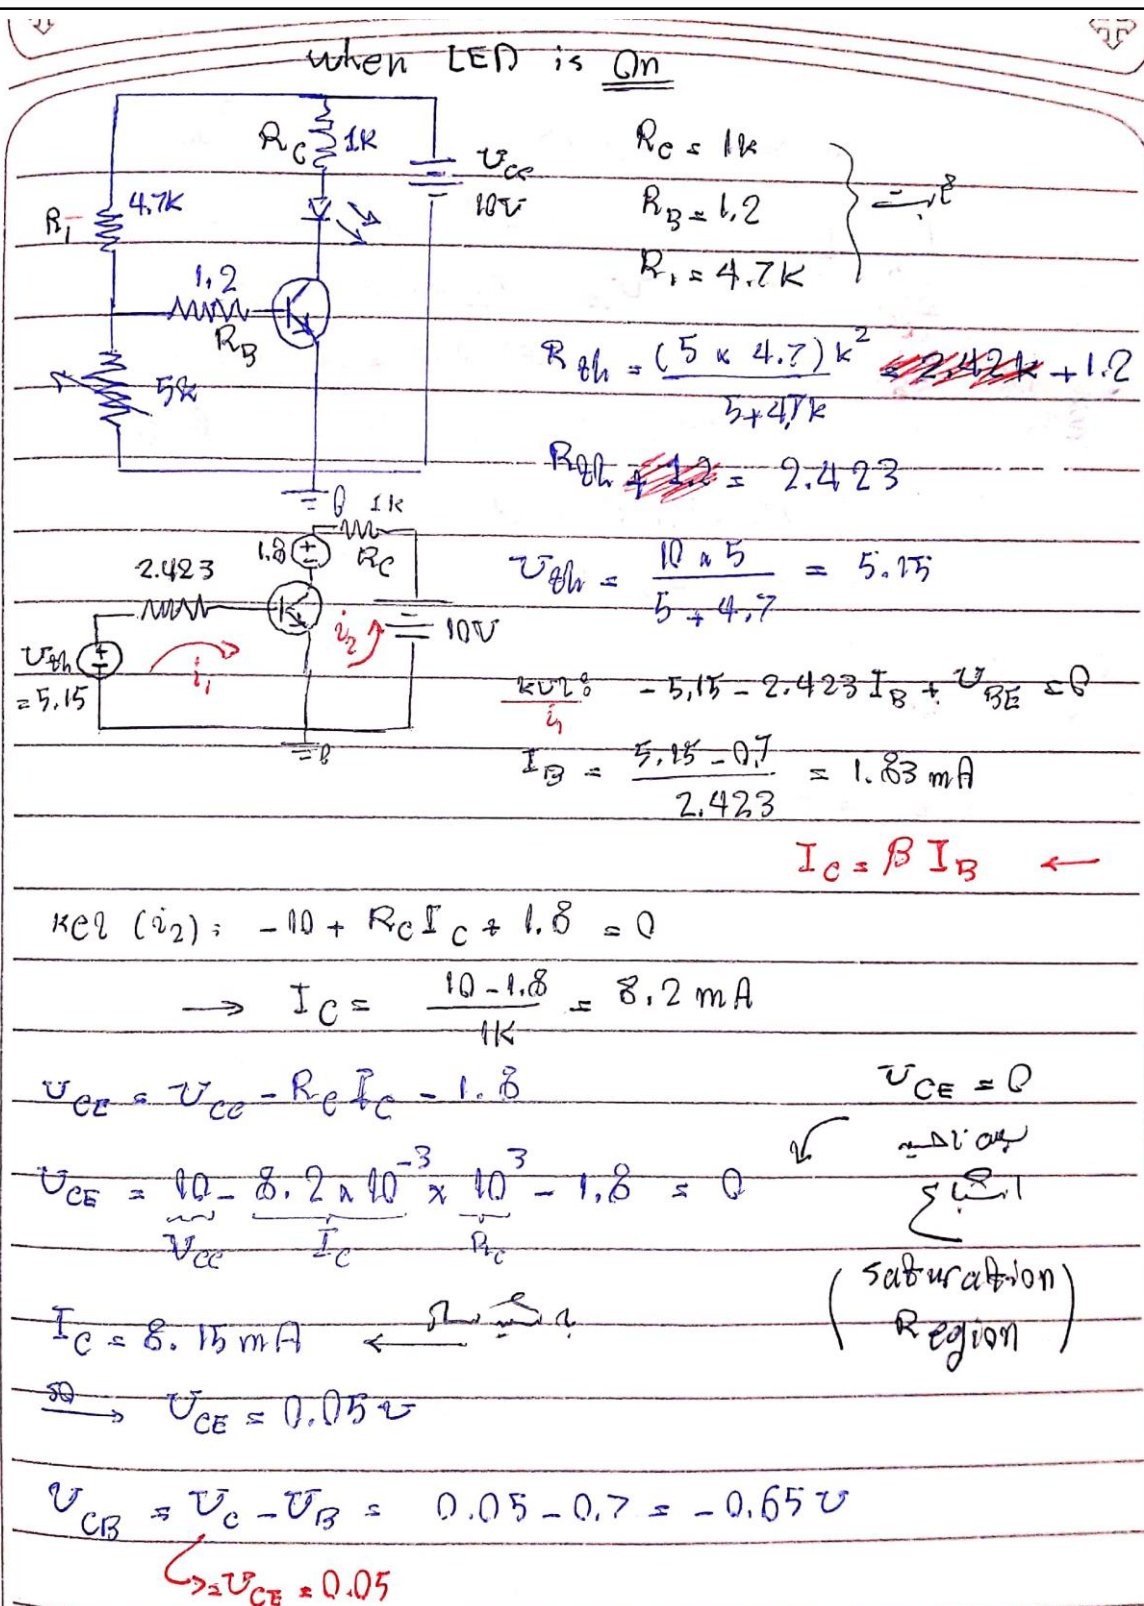 when LED is On
R_C 1k
V_CC
10V
R_1 4.7K
1.2
R_B
5k
R_C = 1k
R_B = 1.2
R_1 = 4.7K
ثابت
R_th = (5 × 4.7)k² / 5+4.7k + 1.2
R_th = 2.423
V_th = 10 × 5 / 5 + 4.7 = 5.15
0
1k
1.8
R_C
2.423
i_2
10V
V_th = 5.15
i_1
0
KVL: i_1 - 5,15 - 2.423 I_B + V_BE = 0
I_B = 5.15 - 0.7 / 2.423 = 1.83 mA
I_C = β I_B ←
KCL (i_2): -10 + R_C I_C + 1.8 = 0
→ I_C = 10 - 1.8 / 1K = 8.2 mA
V_CE = V_CC - R_C I_C - 1.8
V_CE = 10 - 8.2 × 10^-3 × 10^3 - 1.8 = 0
V_CC I_C R_C
V_CE = 0
ناحیه
اشباع
(saturation Region)
I_C = 8.15 mA ←
so → V_CE = 0.05 V
V_CB = V_C - V_B = 0.05 - 0.7 = -0.65 V
→ = V_CE = 0.05